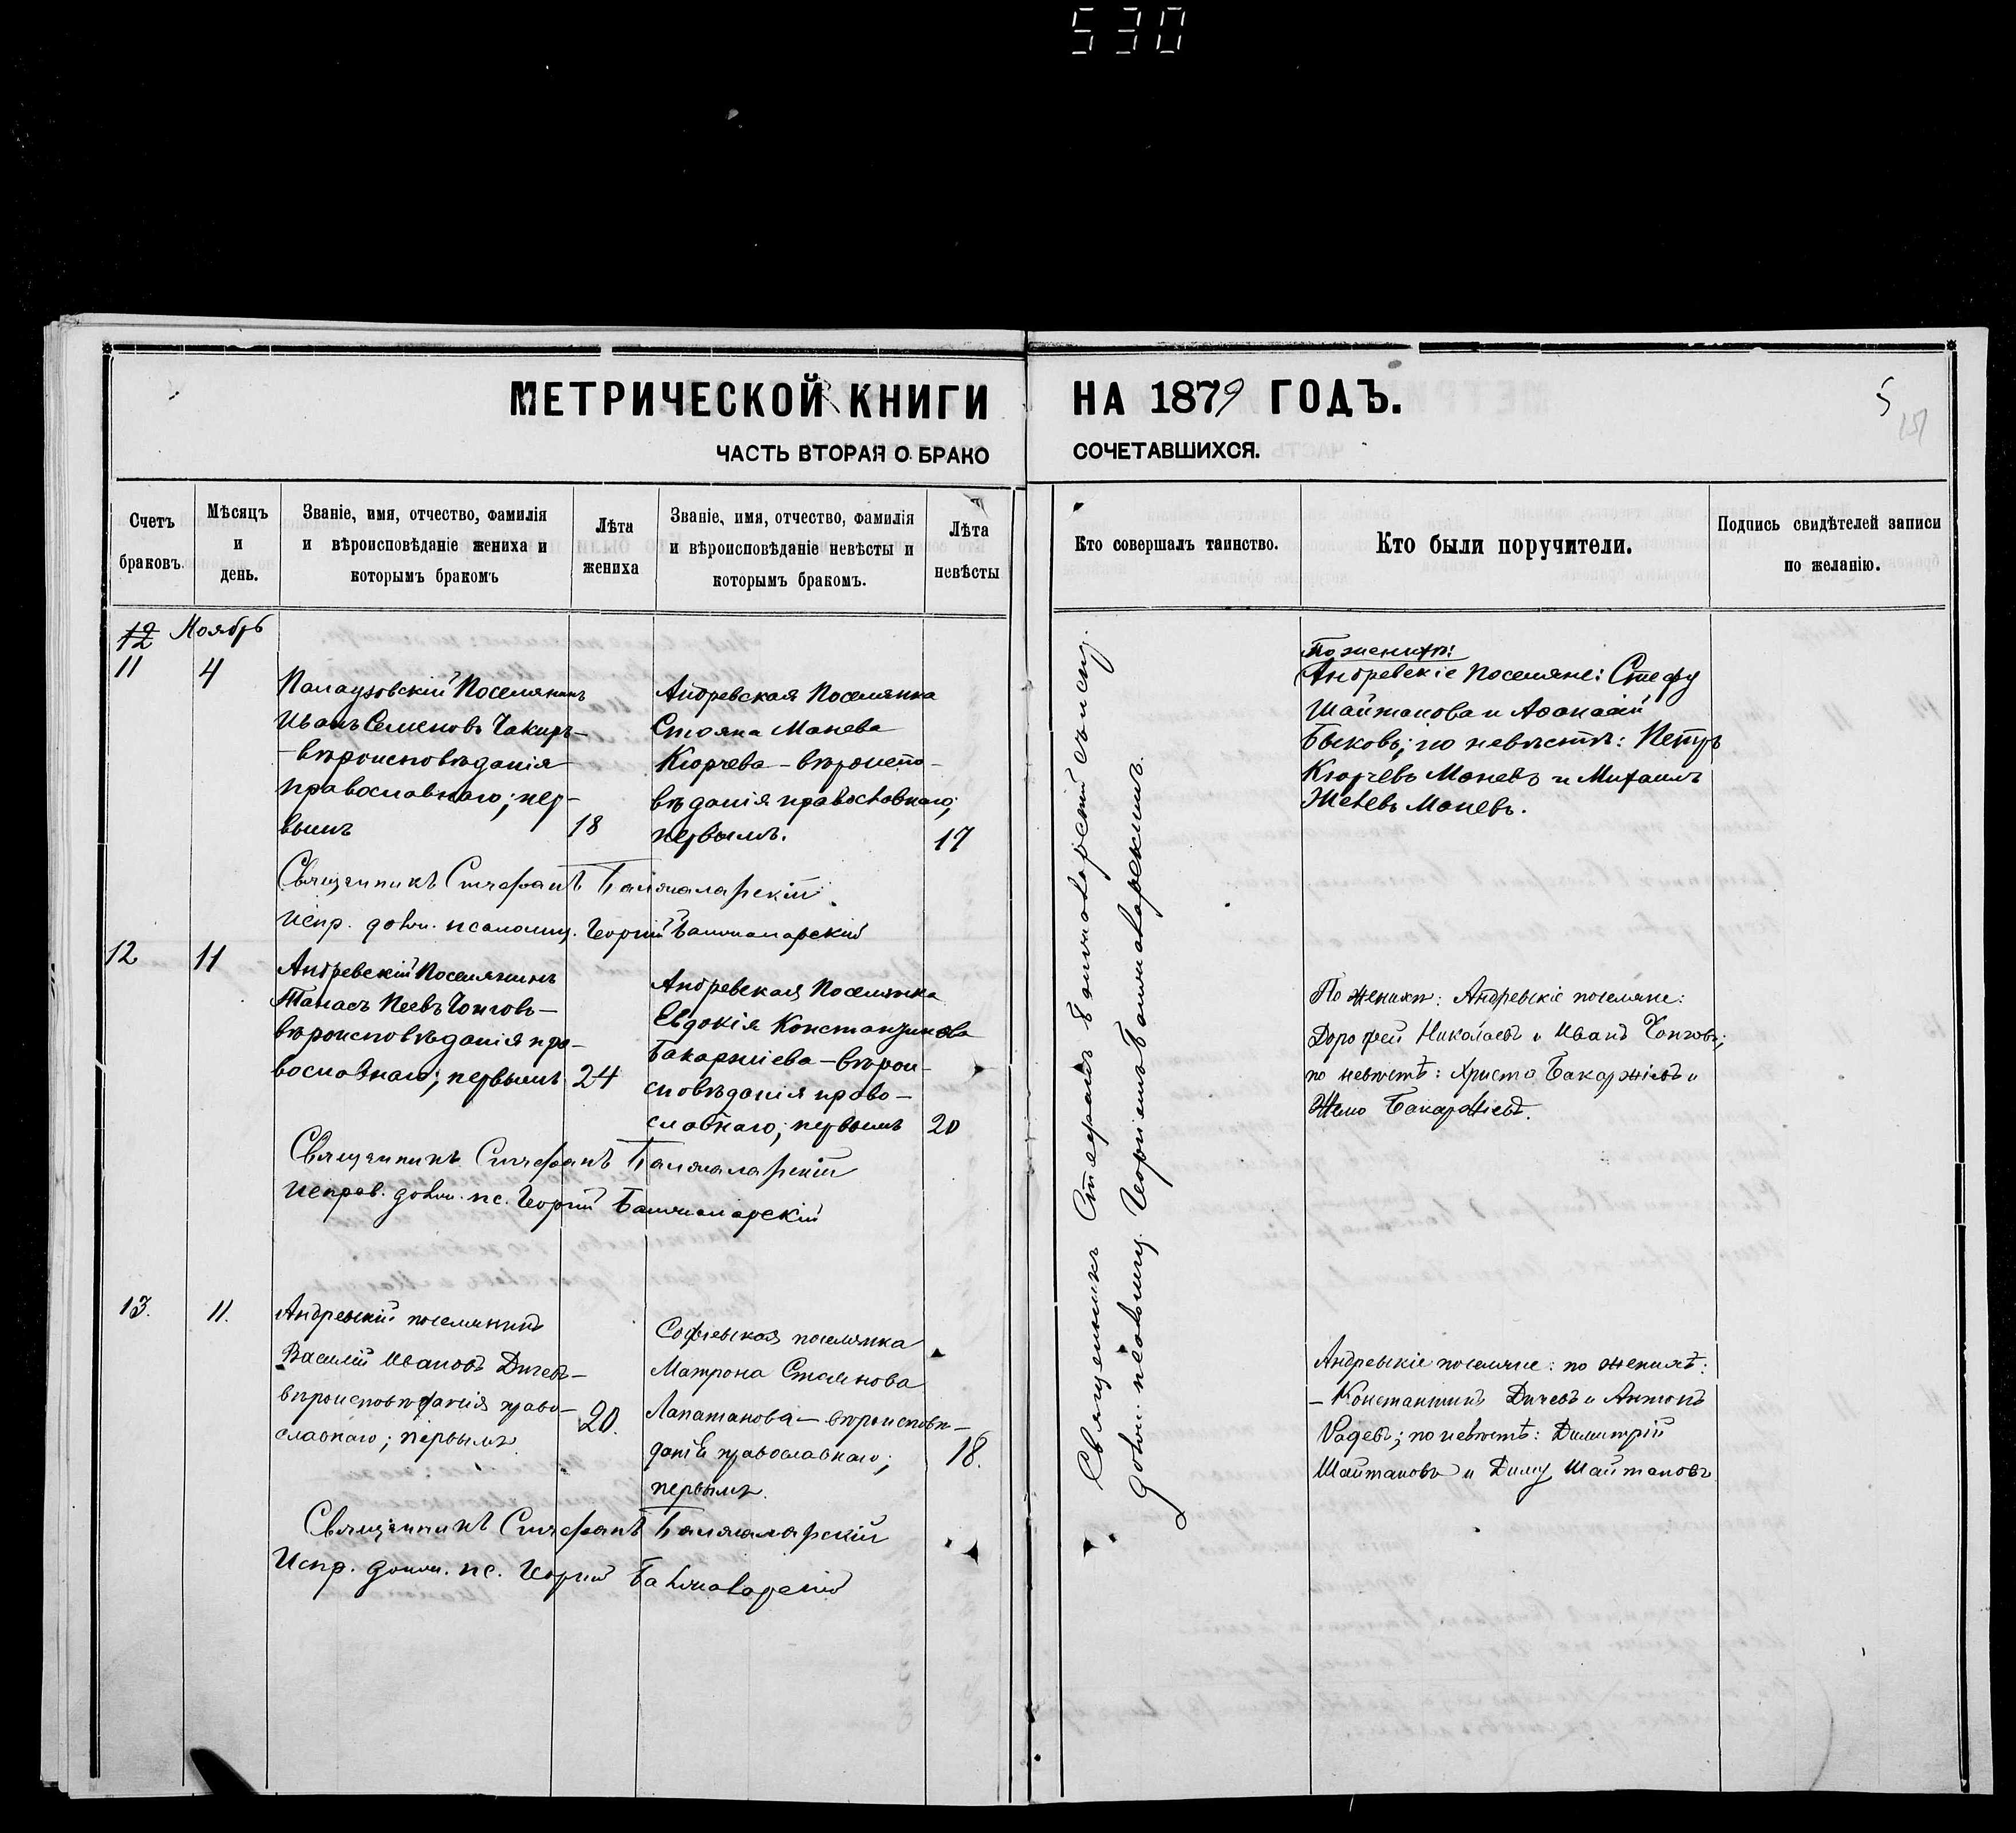 530
МЕТРИЧЕСКОЙ КНИГИ НА 1879 ГОДЪ.
5
ЧАСТЬ ВТОРАЯ О БРАКО СОЧЕТАВШИХСЯ.
Счетъ браковъ.
Мѣсяцъ и день.
Званіе, имя, отчество, фамилія
и вѣроисповѣданіе жениха и
которымъ бракомъ
Лѣта жениха
Званіе, имя, отчество, фамилія
и вѣроисповѣданіе невѣсты и
которымъ бракомъ.
Лѣта невѣсты
Кто совершалъ таинство.
Кто были поручители.
Подпись свидѣтелей записи
по желанію.
12 Ноябрь
11
4
Палаузовскій Поселянинъ
Иванъ Семеновъ Чакиръ-
-вѣроисповѣданія
православнаго; пер-
вымъ
18
Андревская Поселянка
Стояна Манева
Кюрчева - вѣроиспо-
вѣданія православнаго;
первымъ.
17
По женихѣ:
Андревскіе Поселяне: Стефу
Шайтанова и Афанасій
Быковъ; по невѣстѣ: Петръ
Кюрчевъ Маневъ и Михаилъ
Желевъ Маневъ.
Священникъ Стефанъ Балжаларскій
Испр. долж. псаломщ. Георгій Балжаларскій
12
11
Андревскій Поселянинъ
Танасъ Пеевъ Чонговъ-
вѣроисповѣданія пра-
вославнаго; первымъ
24
Андревская Поселянка
Евдокія Константинова
Бакаржіева - вѣрои-
сповѣданія право-
славнаго; первымъ
20
По женихѣ: Андревскіе поселяне:
Дорофей Николаевъ и Иванъ Чонговъ;
по невѣстѣ: Христо Бакаржіевъ и
Желю Бакаржіевъ.
Священникъ Стефанъ Балжаларскій
Исправ. долж. пс. Георгій Балжаларскій
13.
11.
Андревскій поселянинъ
Василій Ивановъ Дичевъ-
вѣроисповѣданія право-
славнаго; первымъ
20.
Софіевская поселянка
Матрона Стоянова
Лапатанова - вѣроисповѣ-
данія православнаго;
первымъ.
18.
Андревскіе поселяне: по женихѣ:
- Константинъ Дичевъ и Антонъ
Радевъ; по невѣстѣ: Димитрій
Шайтановъ и Диму Шайтановъ
Священникъ Стефанъ Балжаларскій
Испр. долж. пс. Георгій Балжаларскій
Священникъ Стефанъ Балжаларскій съ испр.
долж. псаломщ. Георгіемъ Балжаларскимъ.